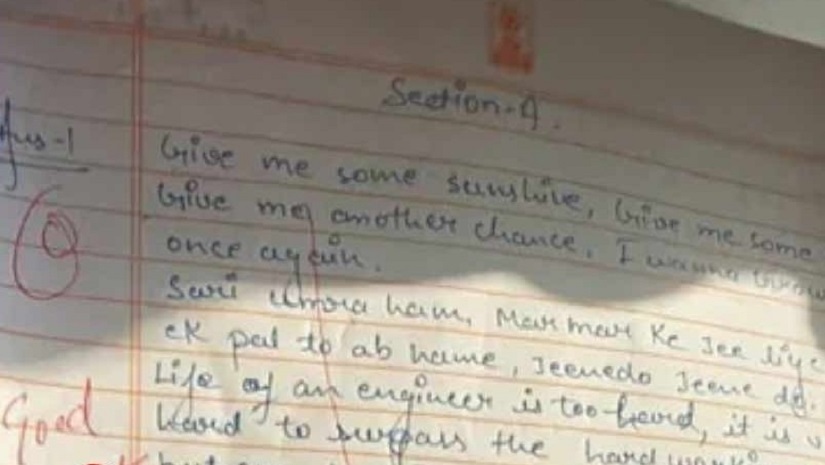 Section-A.
Ans-1
Give me some sunshine, Give me some
Give me another chance, I wanna grow
once again.
Sari umra ham, Mar mar Ke Jee liye
ek pal to ab hame, Jeenedo Jeene do.
0
Life of an engineer is too hard, it is
hard to surpass the hard work
Good
but